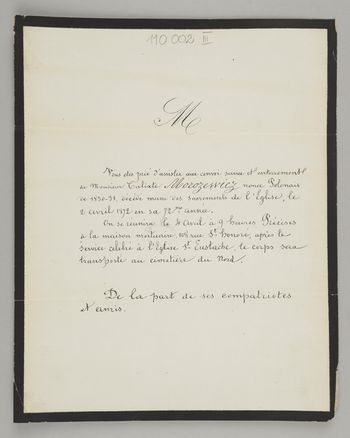 110 002 III
M
Vous êtes prié d'assister aux convoi service et enterrement
de Monsieur Calixte Morozewicz nonce Polonais
de 1830-31, décédé muni des sacrements de l'Église, le
2 avril 1872 en sa 72me année.
On se réunira le 4 Avril à 9 heures Précises
à la maison mortuaire, rue St Honoré, après le
service célébré à l'Église St Eustache, le corps sera
transporté au cimetière du Nord.
De la part de ses compatriotes
et amis.